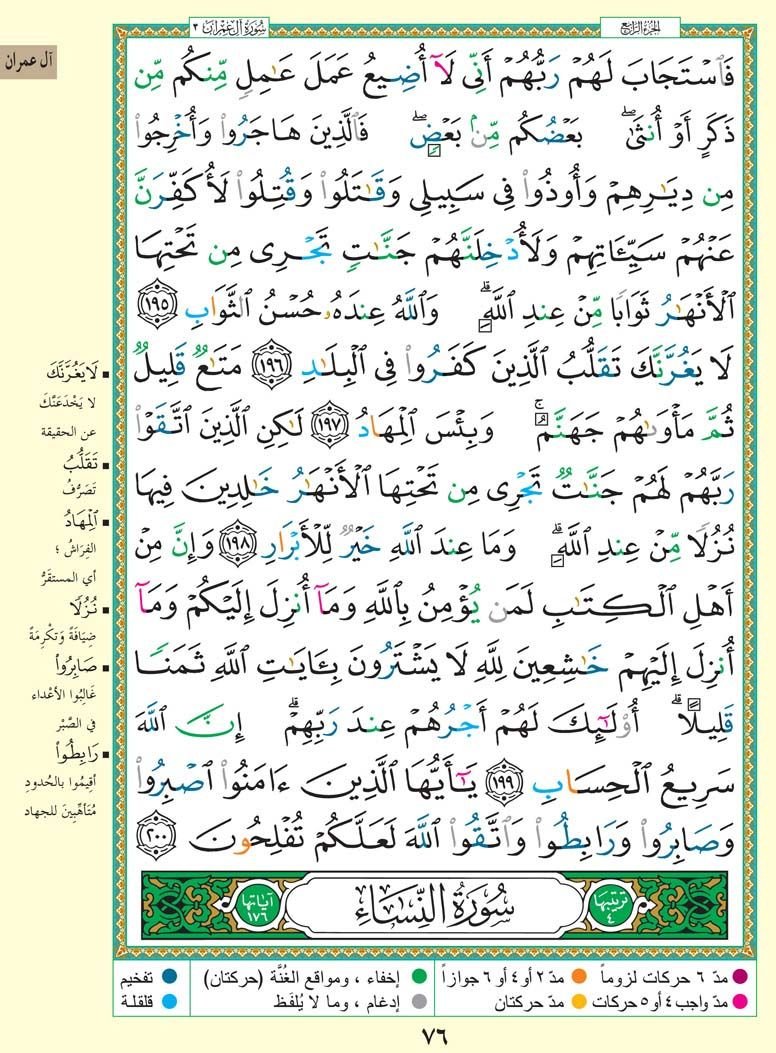 سُورَةُ آلِ عِمْرَان ٣
الجُزءُ الرَّابع
آل عمران
فَٱسْتَجَابَ لَهُمْ رَبُّهُمْ أَنِّى لَآ أُضِيعُ عَمَلَ عَٰمِلٍ مِّنكُم مِّن
ذَكَرٍ أَوْ أُنثَىٰ ۖ بَعْضُكُم مِّنۢ بَعْضٍ ۖ فَٱلَّذِينَ هَاجَرُوا۟ وَأُخْرِجُوا۟
مِن دِيَٰرِهِمْ وَأُوذُوا۟ فِى سَبِيلِى وَقَٰتَلُوا۟ وَقُتِلُوا۟ لَأُكَفِّرَنَّ
عَنْهُمْ سَيِّـَٔاتِهِمْ وَلَأُدْخِلَنَّهُمْ جَنَّٰتٍ تَجْرِى مِن تَحْتِهَا
ٱلْأَنْهَٰرُ ثَوَابًا مِّنْ عِندِ ٱللَّهِ ۗ وَٱللَّهُ عِندَهُۥ حُسْنُ ٱلثَّوَابِ ١٩٥
لَا يَغُرَّنَّكَ تَقَلُّبُ ٱلَّذِينَ كَفَرُوا۟ فِى ٱلْبِلَٰدِ ١٩٦ مَتَٰعٌ قَلِيلٌ
ثُمَّ مَأْوَىٰهُمْ جَهَنَّمُ ۚ وَبِئْسَ ٱلْمِهَادُ ١٩٧ لَٰكِنِ ٱلَّذِينَ ٱتَّقَوْا۟
رَبَّهُمْ لَهُمْ جَنَّٰتٌ تَجْرِى مِن تَحْتِهَا ٱلْأَنْهَٰرُ خَٰلِدِينَ فِيهَا
نُزُلًا مِّنْ عِندِ ٱللَّهِ ۗ وَمَا عِندَ ٱللَّهِ خَيْرٌ لِّلْأَبْرَارِ ١٩٨ وَإِنَّ مِنْ
أَهْلِ ٱلْكِتَٰبِ لَمَن يُؤْمِنُ بِٱللَّهِ وَمَآ أُنزِلَ إِلَيْكُمْ وَمَآ
أُنزِلَ إِلَيْهِمْ خَٰشِعِينَ لِلَّهِ لَا يَشْتَرُونَ بِـَٔايَٰتِ ٱللَّهِ ثَمَنًا
قَلِيلًا ۗ أُو۟لَٰٓئِكَ لَهُمْ أَجْرُهُمْ عِندَ رَبِّهِمْ ۗ إِنَّ ٱللَّهَ
سَرِيعُ ٱلْحِسَابِ ١٩٩ يَٰٓأَيُّهَا ٱلَّذِينَ ءَامَنُوا۟ ٱصْبِرُوا۟
وَصَابِرُوا۟ وَرَابِطُوا۟ وَٱتَّقُوا۟ ٱللَّهَ لَعَلَّكُمْ تُفْلِحُونَ ٢٠٠
تَرتيبها ٤
سُورَةُ النِّسَاءِ
آياتها ١٧٦
لَا يَغُرَّنَّكَ
لا يَخْدَعَنَّكَ
عن الحقيقة
تَقَلُّبُ
تَصَرُّفُ
ٱلْمِهَادُ
الفِرَاشُ ؛
أي المستقَرُّ
نُزُلًا
ضِيَافَةً وَتَكْرِمَةً
صَابِرُوا۟
غَالِبُوا الأعْداء
في الصَّبْر
رَابِطُوا۟
أقِيمُوا بالحُدودِ
مُتَأهِّبِينَ للجهاد
مدّ ٦ حركات لزوماً
مدّ ٢ أو ٤ أو ٦ جوازاً
إخفاء ، ومواقع الغُنَّة (حركتان)
تفخيم
مدّ واجب ٤ أو ٥ حركات
مدّ حركتان
إدغام ، وما لا يُلفَظ
قلقلة
٧٦